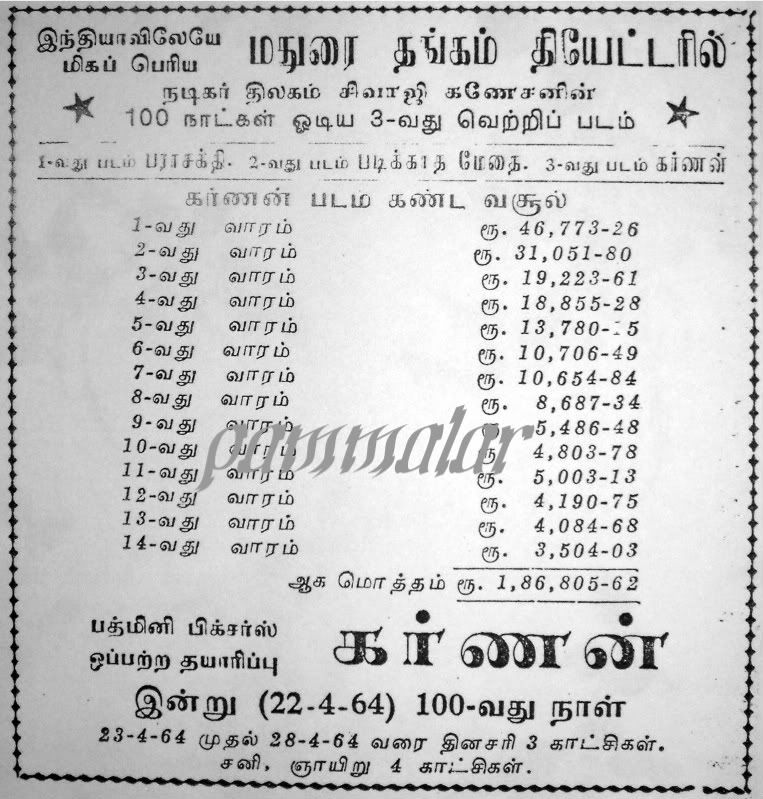 இந்தியாவிலேயே
மிகப் பெரிய
மதுரை தங்கம் தியேட்டரில்
நடிகர் திலகம் சிவாஜி கணேசனின்
100 நாட்கள் ஓடிய 3-வது வெற்றிப் படம்
1-வது படம் பராசக்தி. 2-வது படம் படிக்காத மேதை. 3-வது படம் கர்ணன்
கர்ணன் படம் கண்ட வசூல்
1-வது வாரம் ரூ. 46,773-26
2-வது வாரம் ரூ. 31,051-80
3-வது வாரம் ரூ. 19,223-61
4-வது வாரம் ரூ. 18,855-28
5-வது வாரம் ரூ.
6-வது வாரம் ரூ. 10,706-49
7-வது வாரம் ரூ. 10,654-84
8-வது வாரம் ரூ. 8,687-34
9-வது வாரம் ரூ. 5,486-48
10-வது வாரம் ரூ 4,803-78
11-வது வாரம் ரூ. 5,003-13
12-வது வாரம் ரூ. 4,190-75
13-வது வாரம் ரூ. 4,084-68
14-வது வாரம் ரூ. 3,504-03
pammalar
ஆக மொத்தம் ரூ. 1,86,805-62
பத்மினி பிக்சர்ஸ்
ஒப்பற்ற தயாரிப்பு
கர்ணன்
இன்று (22-4-64) 100-வது நாள்
23-4-64 முதல் 28-4-64 வரை தினசரி 3 காட்சிகள்.
சனி, ஞாயிறு 4 காட்சிகள்.